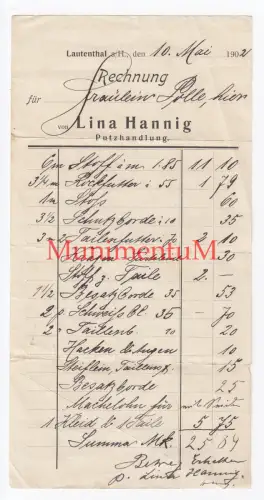 Lautenthal a/H., den 10. Mai 1902
Rechnung
für Fräulein Pölle, hier
von Lina Hannig
Putzhandlung.
6 m Stoff i m. 1.85 11 10
3¼ m Rockfutter i 55 1 79
1 m Stoß 60
3½ Schutzborde i 10 35
3 Taillenfutter 70 2 10
30
Stoff z. Taile 2. –
1½ Besatzborde 35 53
2 p Schweißbl. 36 – 70
2 Taillenb 10 20
Hacken & Augen 10
Steiflein, Taillen 15
Besatzborde 25
Machelohn für
1 Kleid & 1 Taile 5 75
Summa Mk. 25
Erhalten
p. Lina Hannig
MunimentuM